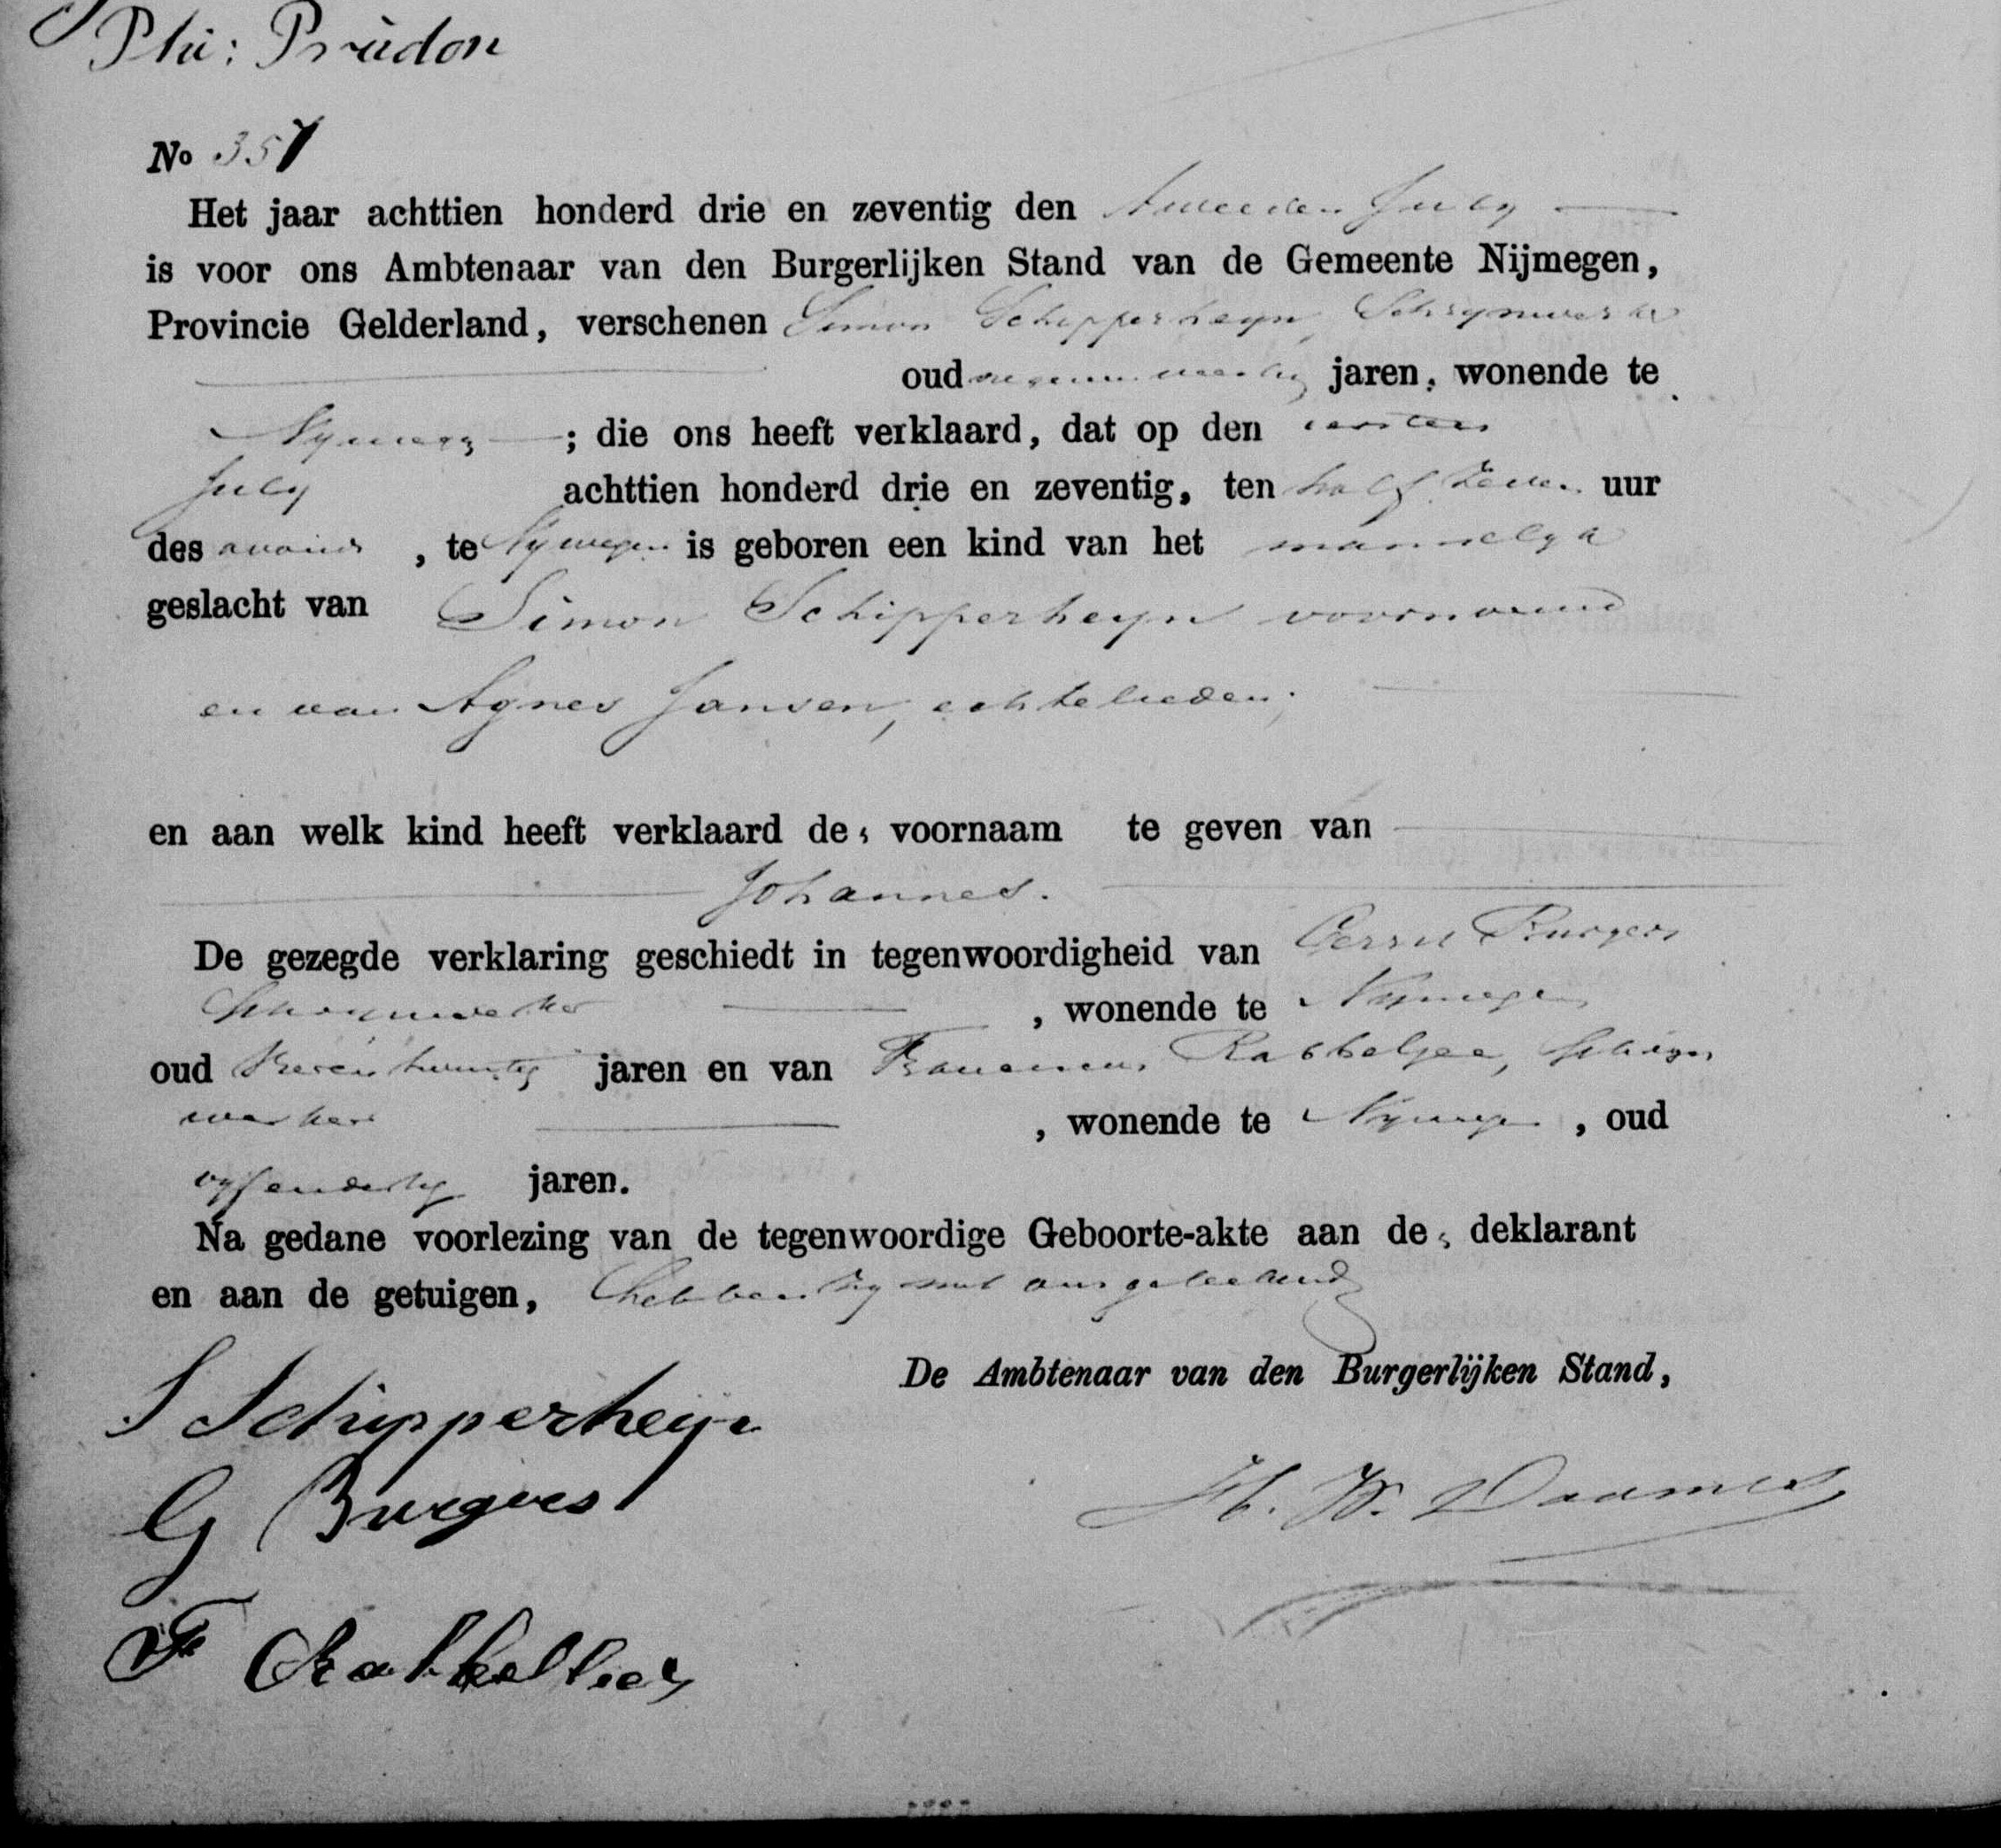 Phi: Prüdon
No 357
Het jaar achttien honderd drie en zeventig den tweeden July
is voor ons Ambtenaar van den Burgerlijken Stand van de Gemeente Nijmegen,
Provincie Gelderland, verschenen Simon Schipperheyn, Schrynwerker
oud jaren, wonende te
Nymegen; die ons heeft verklaard, dat op den eersten
July achttien honderd drie en zeventig, ten half zeven uur
des avonds, te Nymegen is geboren een kind van het mannelyk
geslacht van Simon Schipperheyn voornoemd
en van Agnes Jansen, echtelieden;
en aan welk kind heeft verklaard de voornaam te geven van
Johannes.
De gezegde verklaring geschiedt in tegenwoordigheid van Gerrit Burgers
Schrynwerker, wonende te Nymegen
oud jaren en van Franciscus Schryn
werker, wonende te Nymegen, oud
vyfendertig jaren.
Na gedane voorlezing van de tegenwoordige Geboorte-akte aan de deklarant
en aan de getuigen, hebben zy met ons geteekend
De Ambtenaar van den Burgerlijken Stand,
S Schipperheyn
G Burgers
F